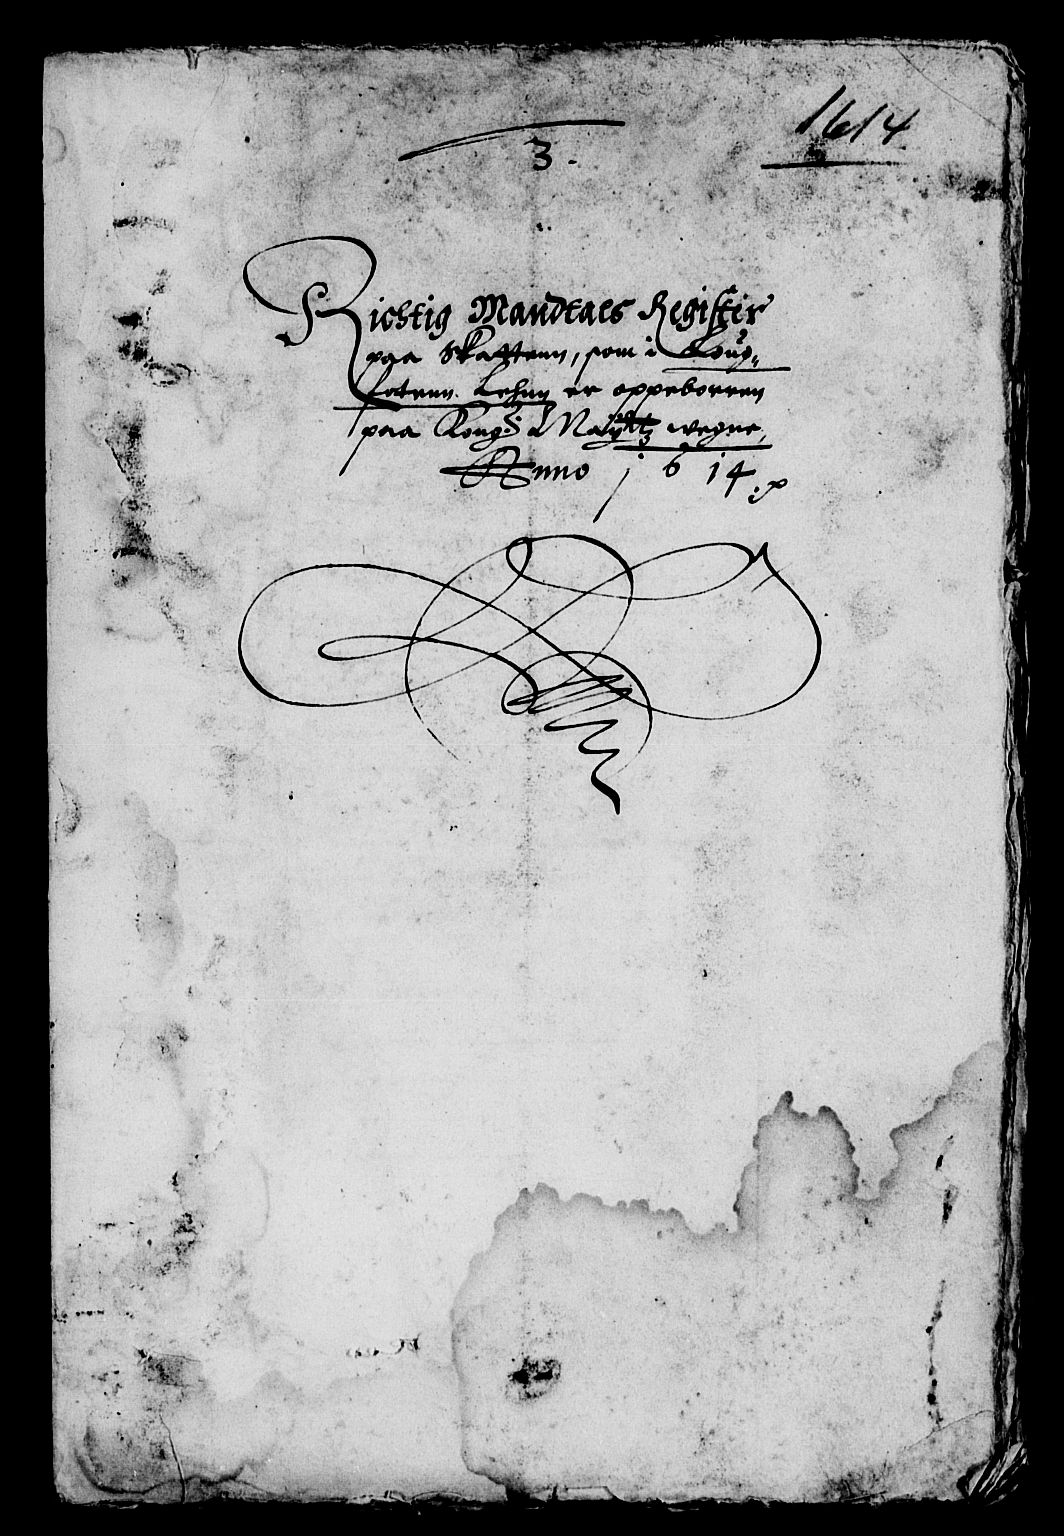 1614
3.
Richtig Mandtals Register
paa Skattenn, som i Loug„
satenn. Lehnn er oppeborren
paa Kong: Maÿtz wegne,
Anno 1614